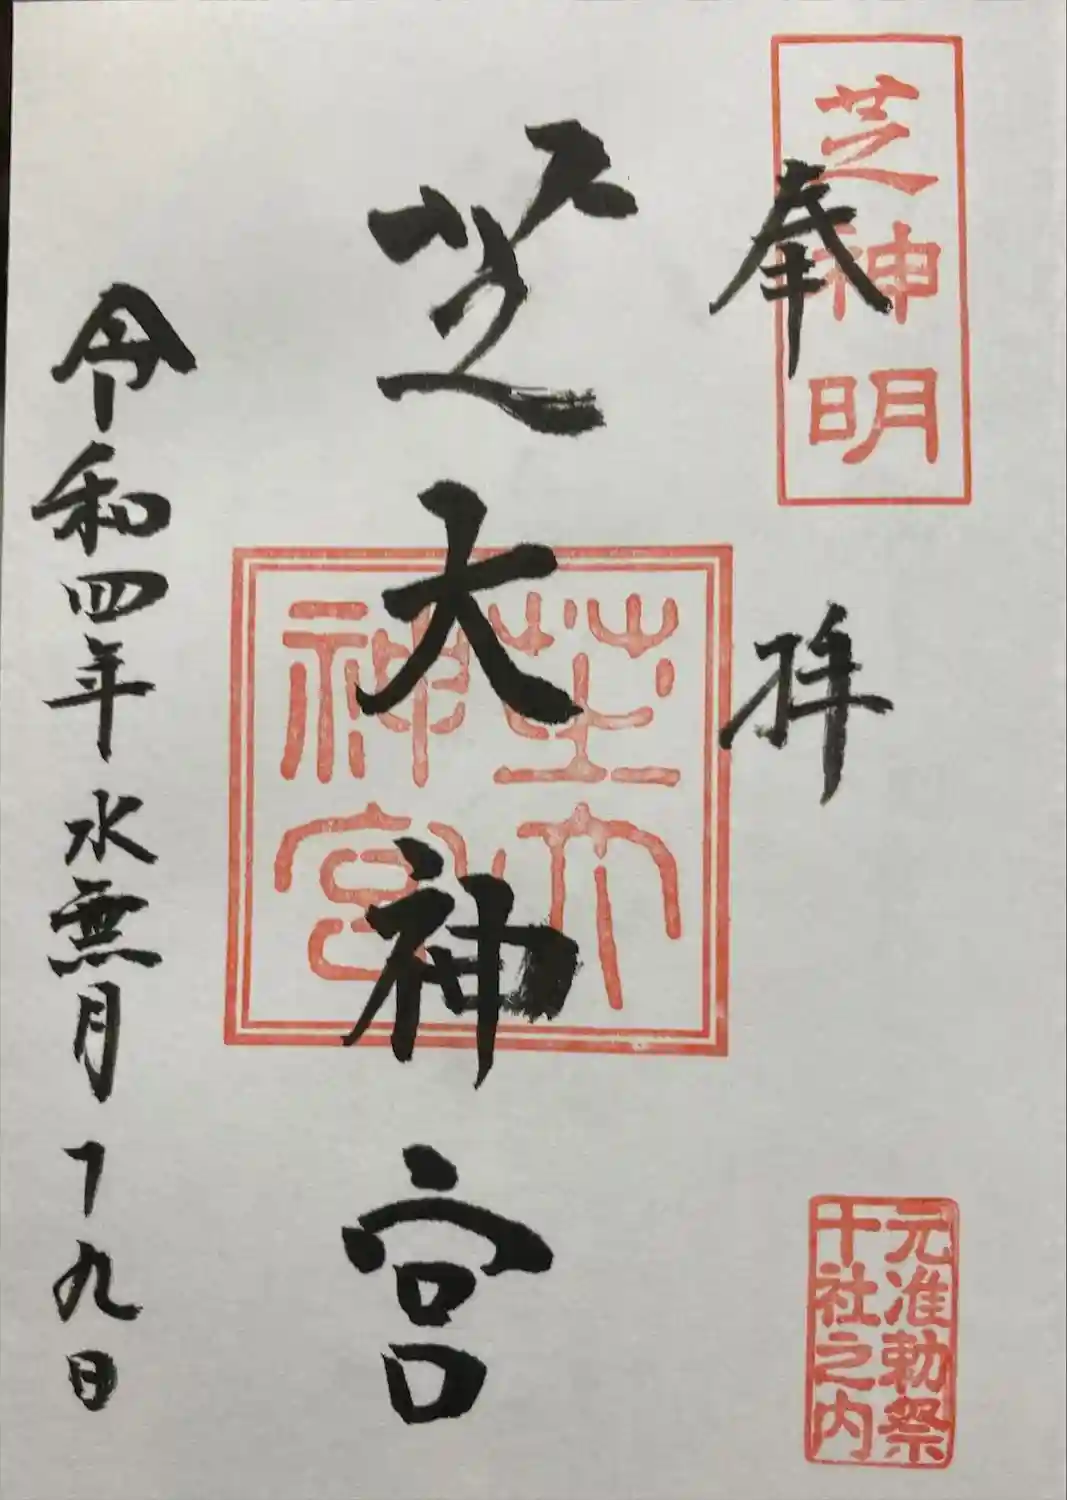 芝神明
奉拝
元准勅祭
十社之内
芝大神宮
芝大
神宮
令和四年水無月十九日